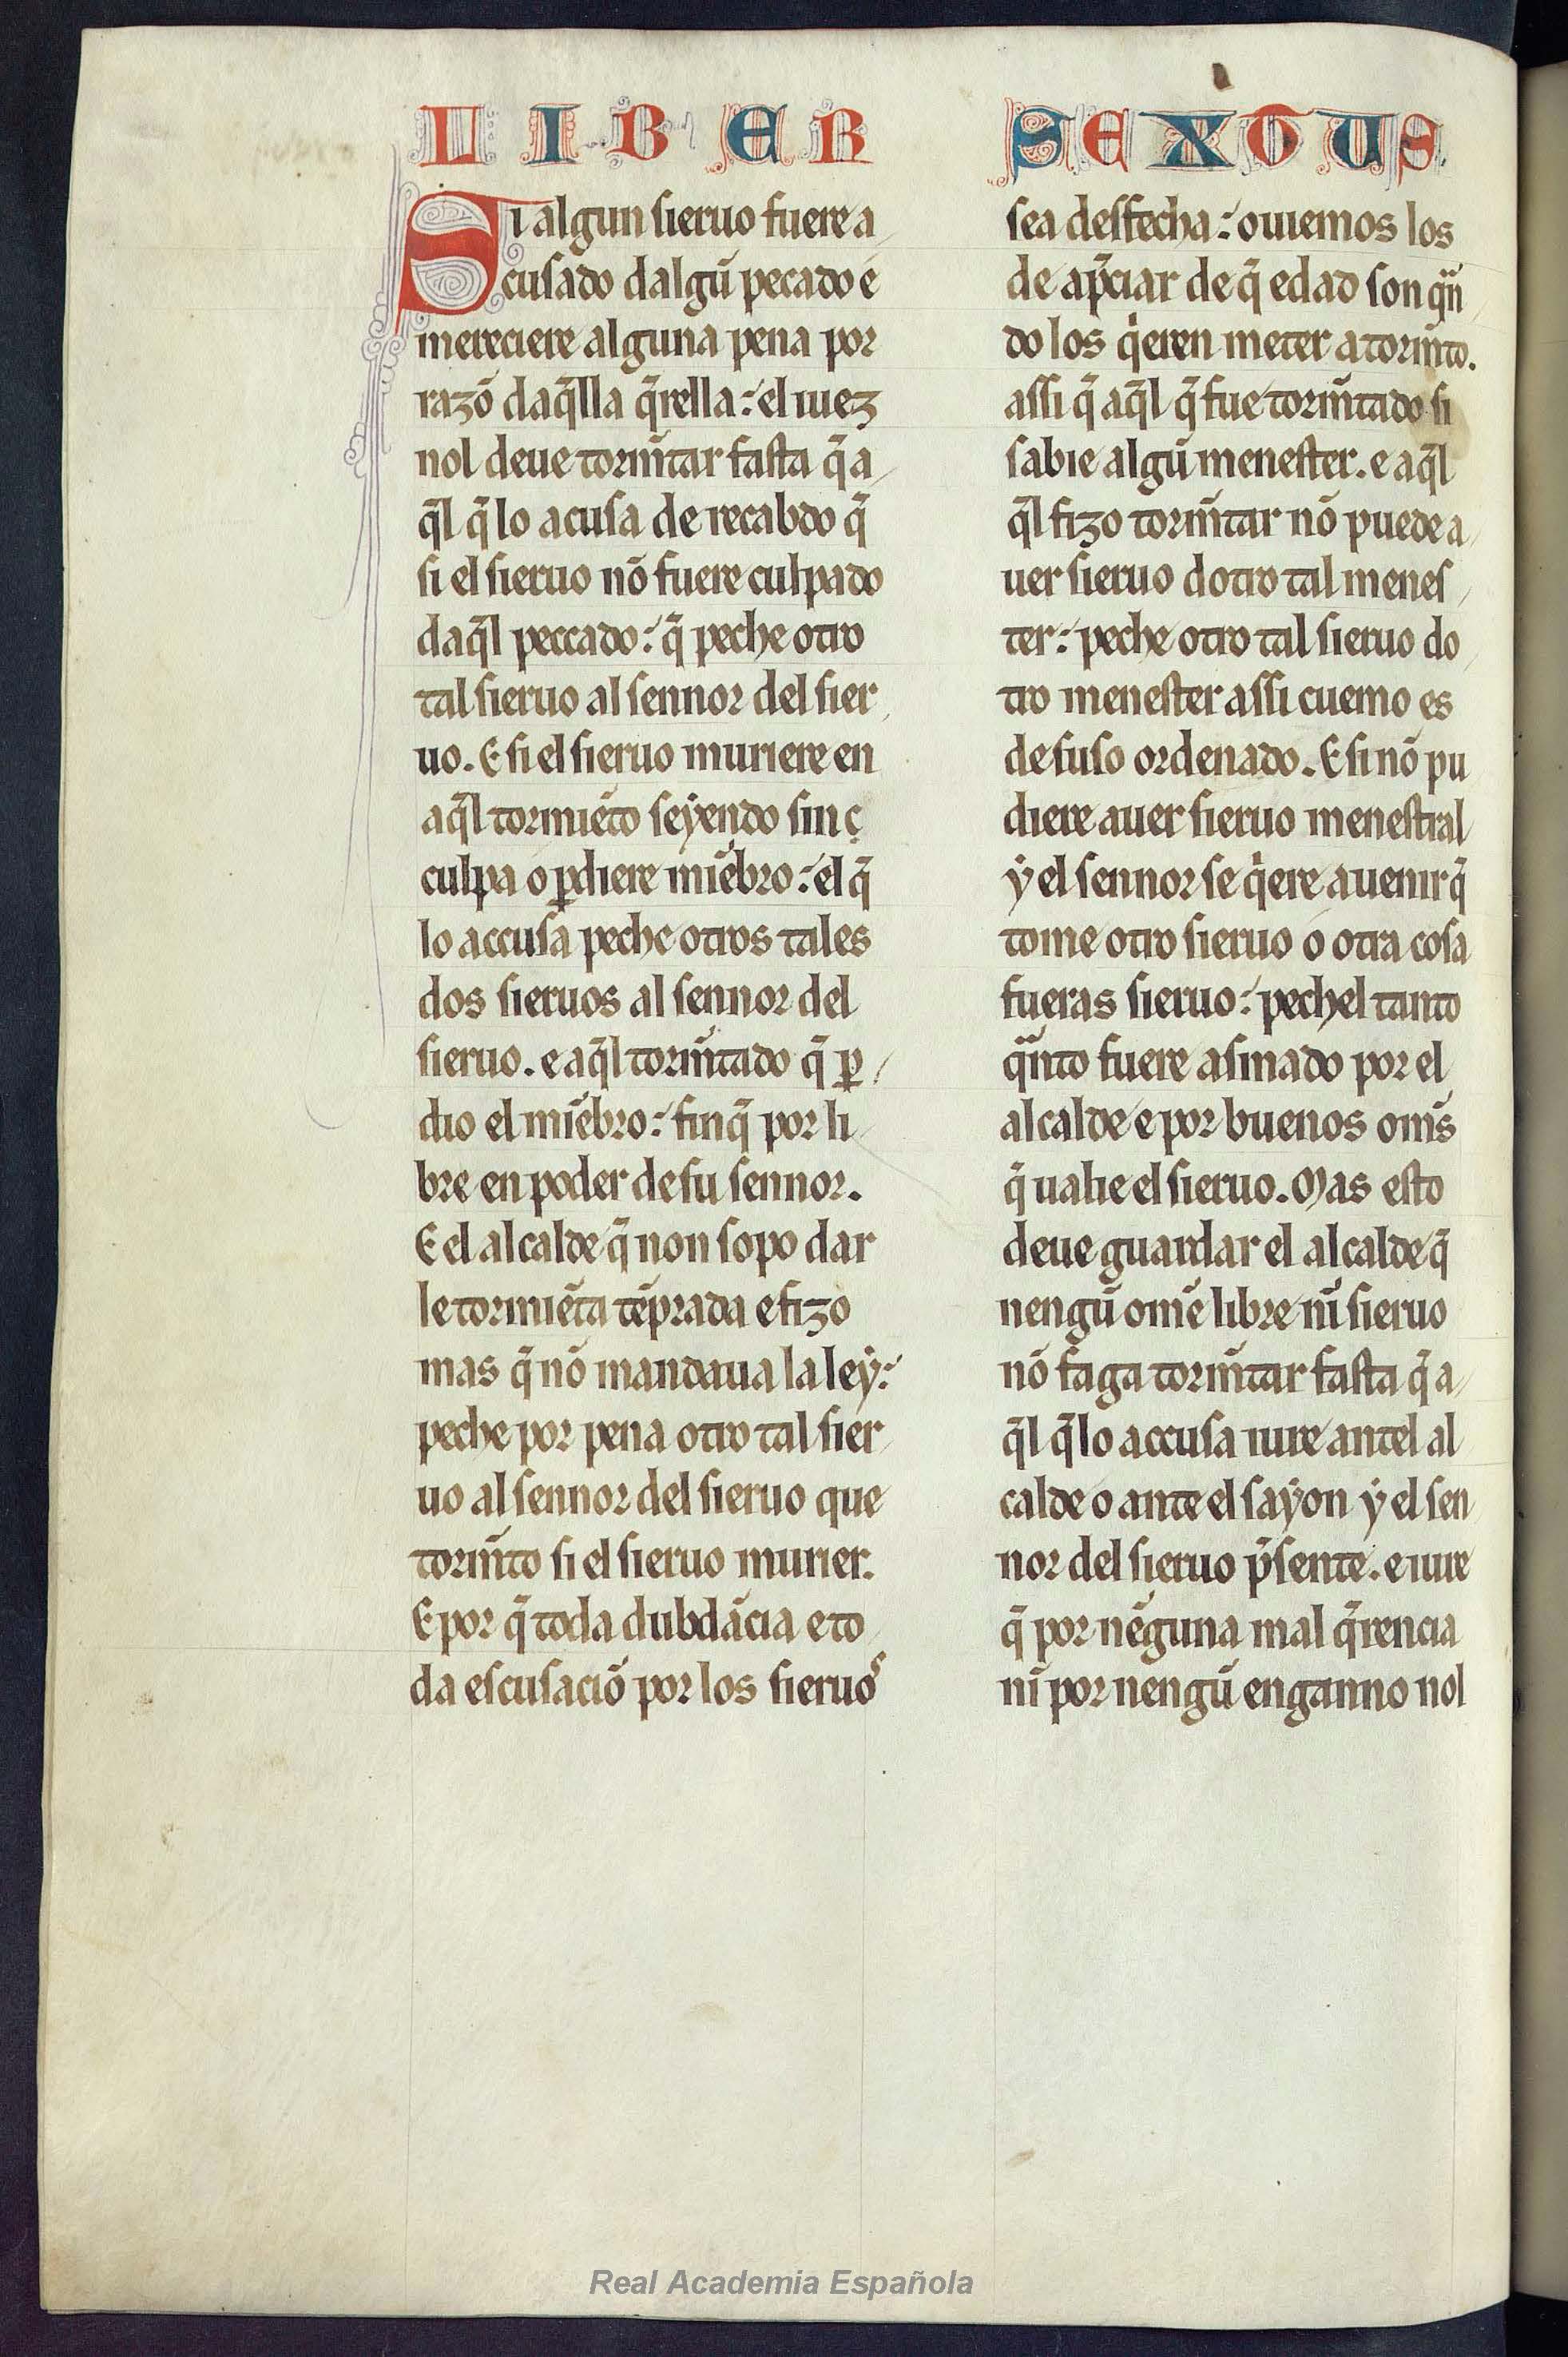 LIBER
Si algun sieruo fuere a
cusado dalgũ pecado e
mereciere alguna pena por
razõ daq̃lla q̃rella: el iuez
nol deue torm̃tar fasta q̃ a
q̃l q̃ lo acusa de recabdo q̃
si el sieruo nõ fuere culpado
daq̃l peccado: q̃ peche otro
tal sieruo al sennor del sier
uo. E si el sieruo muriere en
aq̃l tormiẽto seẏendo sin ç
culpa o ꝑdiere miẽbro: el q̃
lo accusa peche otros tales
dos sieruos al sennor del
sieruo. e aq̃l torm̃tado q̃ ꝑ
dio el miẽbro: finq̃ por li
bre en poder de su sennor.
E el alcalde q̃ non sopo dar
le tormiẽta tẽprada e fizo
mas q̃ nõ mandaua la leẏ:
peche por pena otro tal sier
uo al sennor del sieruo que
torm̃to si el sieruo murier.
E por q̃ toda dubdãcia e to
da escusaciõ por los sieruos
SEXOTUS
sea desfecha: ouiemos los
de ap̃ciar de q̃ edad son qũn
do los q̃eren meter a torm̃to.
assi q̃ aq̃l q̃ fue torm̃tado si
sabie algũ menester. e aq̃l
q̃l fizo torm̃tar nõ puede a
uer sieruo dotro tal menes
ter: peche otro tal sieruo do
tro menester assi cuemo es
de suso ordenado. E si nõ pu
diere auer sieruo menestral
ẏ el sennor se q̃ere auenir q̃
tome otro sieruo o otra cosa
fueras sieruo: pechel tanto
q̃nto fuere asmado por el
alcalde e por buenos om̃s
q̃ ualie el sieruo. Mas esto
deue guardar el alcalde q̃
nengũ om̃e libre nĩ sieruo
nõ faga torm̃tar fasta q̃ a
q̃l q̃ lo accusa iure antel al
calde o ante el saẏon ẏ el sen
nor del sieruo p̃sente. e iure
q̃ por nẽguna mal q̃rencia
nĩ por nengũ enganno nol
Real Academia Española